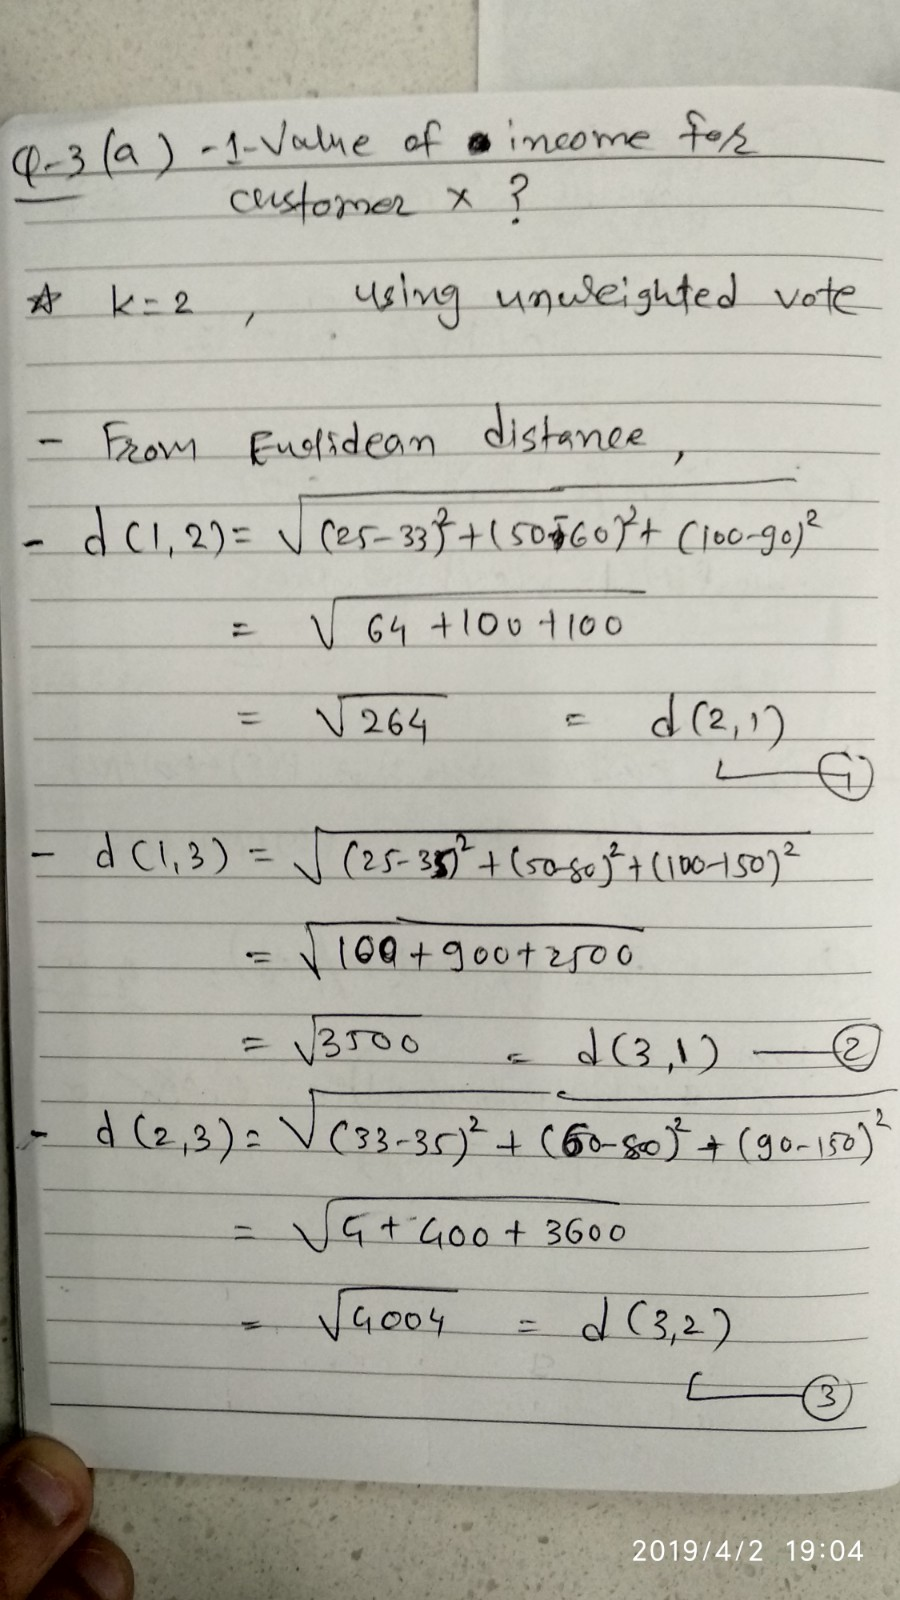 Q-3 (a) - 1-Value of income for
customer x ?
☆ k=2 , using unweighted vote
- From Euclidean distance,
- d(1,2) = √(25-33)² + (50-60)² + (100-90)²
= √64 +100 +100
= √264 = d(2,1)
①
- d(1,3) = √(25-35)² + (50-80)² + (100-150)²
= √100 + 900 + 2500
= √3500 = d(3,1) — ②
- d(2,3) = √(33-35)² + (60-80)² + (90-150)²
= √4 + 400 + 3600
= √4004 = d(3,2)
③
2019/4/2 19:04